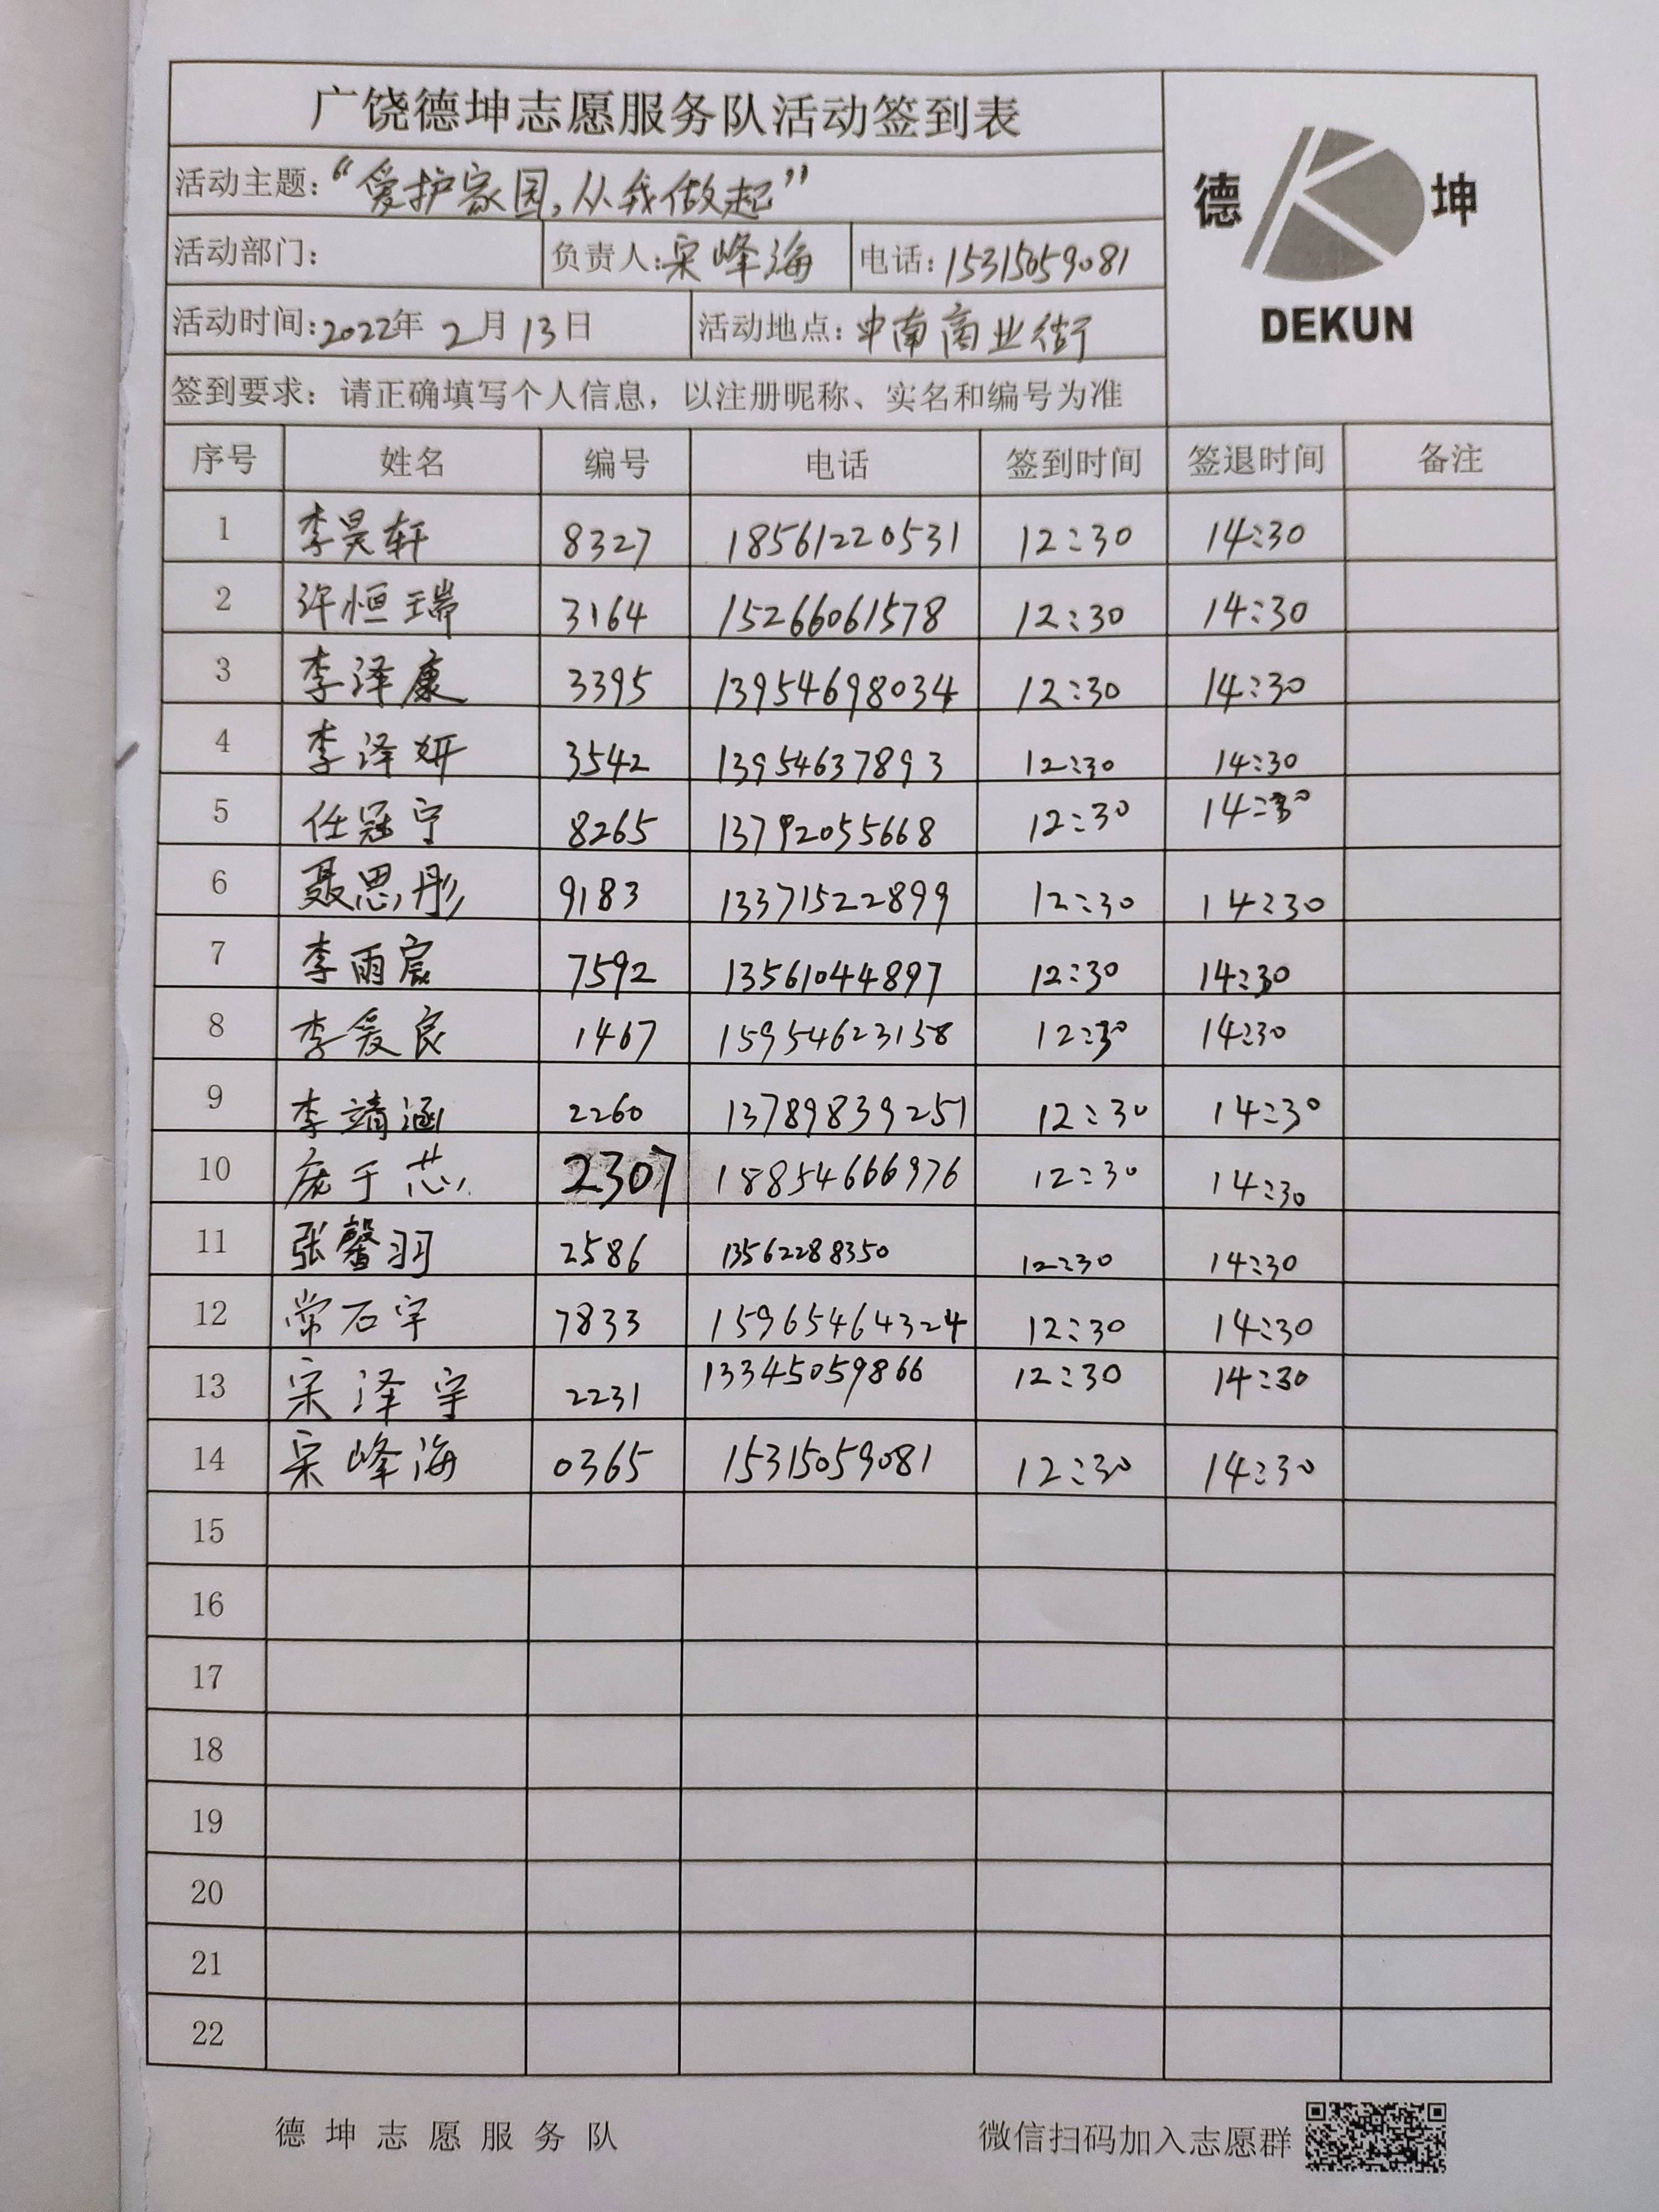 广饶德坤志愿服务队活动签到表
德 坤
DEKUN
活动主题：“爱护家园，从我做起”
活动部门： 负责人：宋峰海 电话：15315059081
活动时间：2022年 2月 13日 活动地点：中南商业街
签到要求：请正确填写个人信息，以注册昵称、实名和编号为准
序号 姓名 编号 电话 签到时间 签退时间 备注
1 李昊轩 8327 18561220531 12:30 14:30
2 许恒瑞 3164 15266061578 12:30 14:30
3 李泽康 3395 13954698034 12:30 14:30
4 李泽妍 3542 13954637893 12:30 14:30
5 任冠宁 8265 13792055668 12:30 14:30
6 聂思彤 9183 13371522899 12:30 14:30
7 李雨宸 7592 13561044897 12:30 14:30
8 李爱良 1467 15954623158 12:30 14:30
9 李靖涵 2260 13789839251 12:30 14:30
10 庞于芯 2307 18854666976 12:30 14:30
11 张馨羽 2586 13562288350 12:30 14:30
12 常石宇 7833 15965464324 12:30 14:30
13 宋泽宇 2231 13345059866 12:30 14:30
14 宋峰海 0365 15315059081 12:30 14:30
15
16
17
18
19
20
21
22
德坤志愿服务队 微信扫码加入志愿群